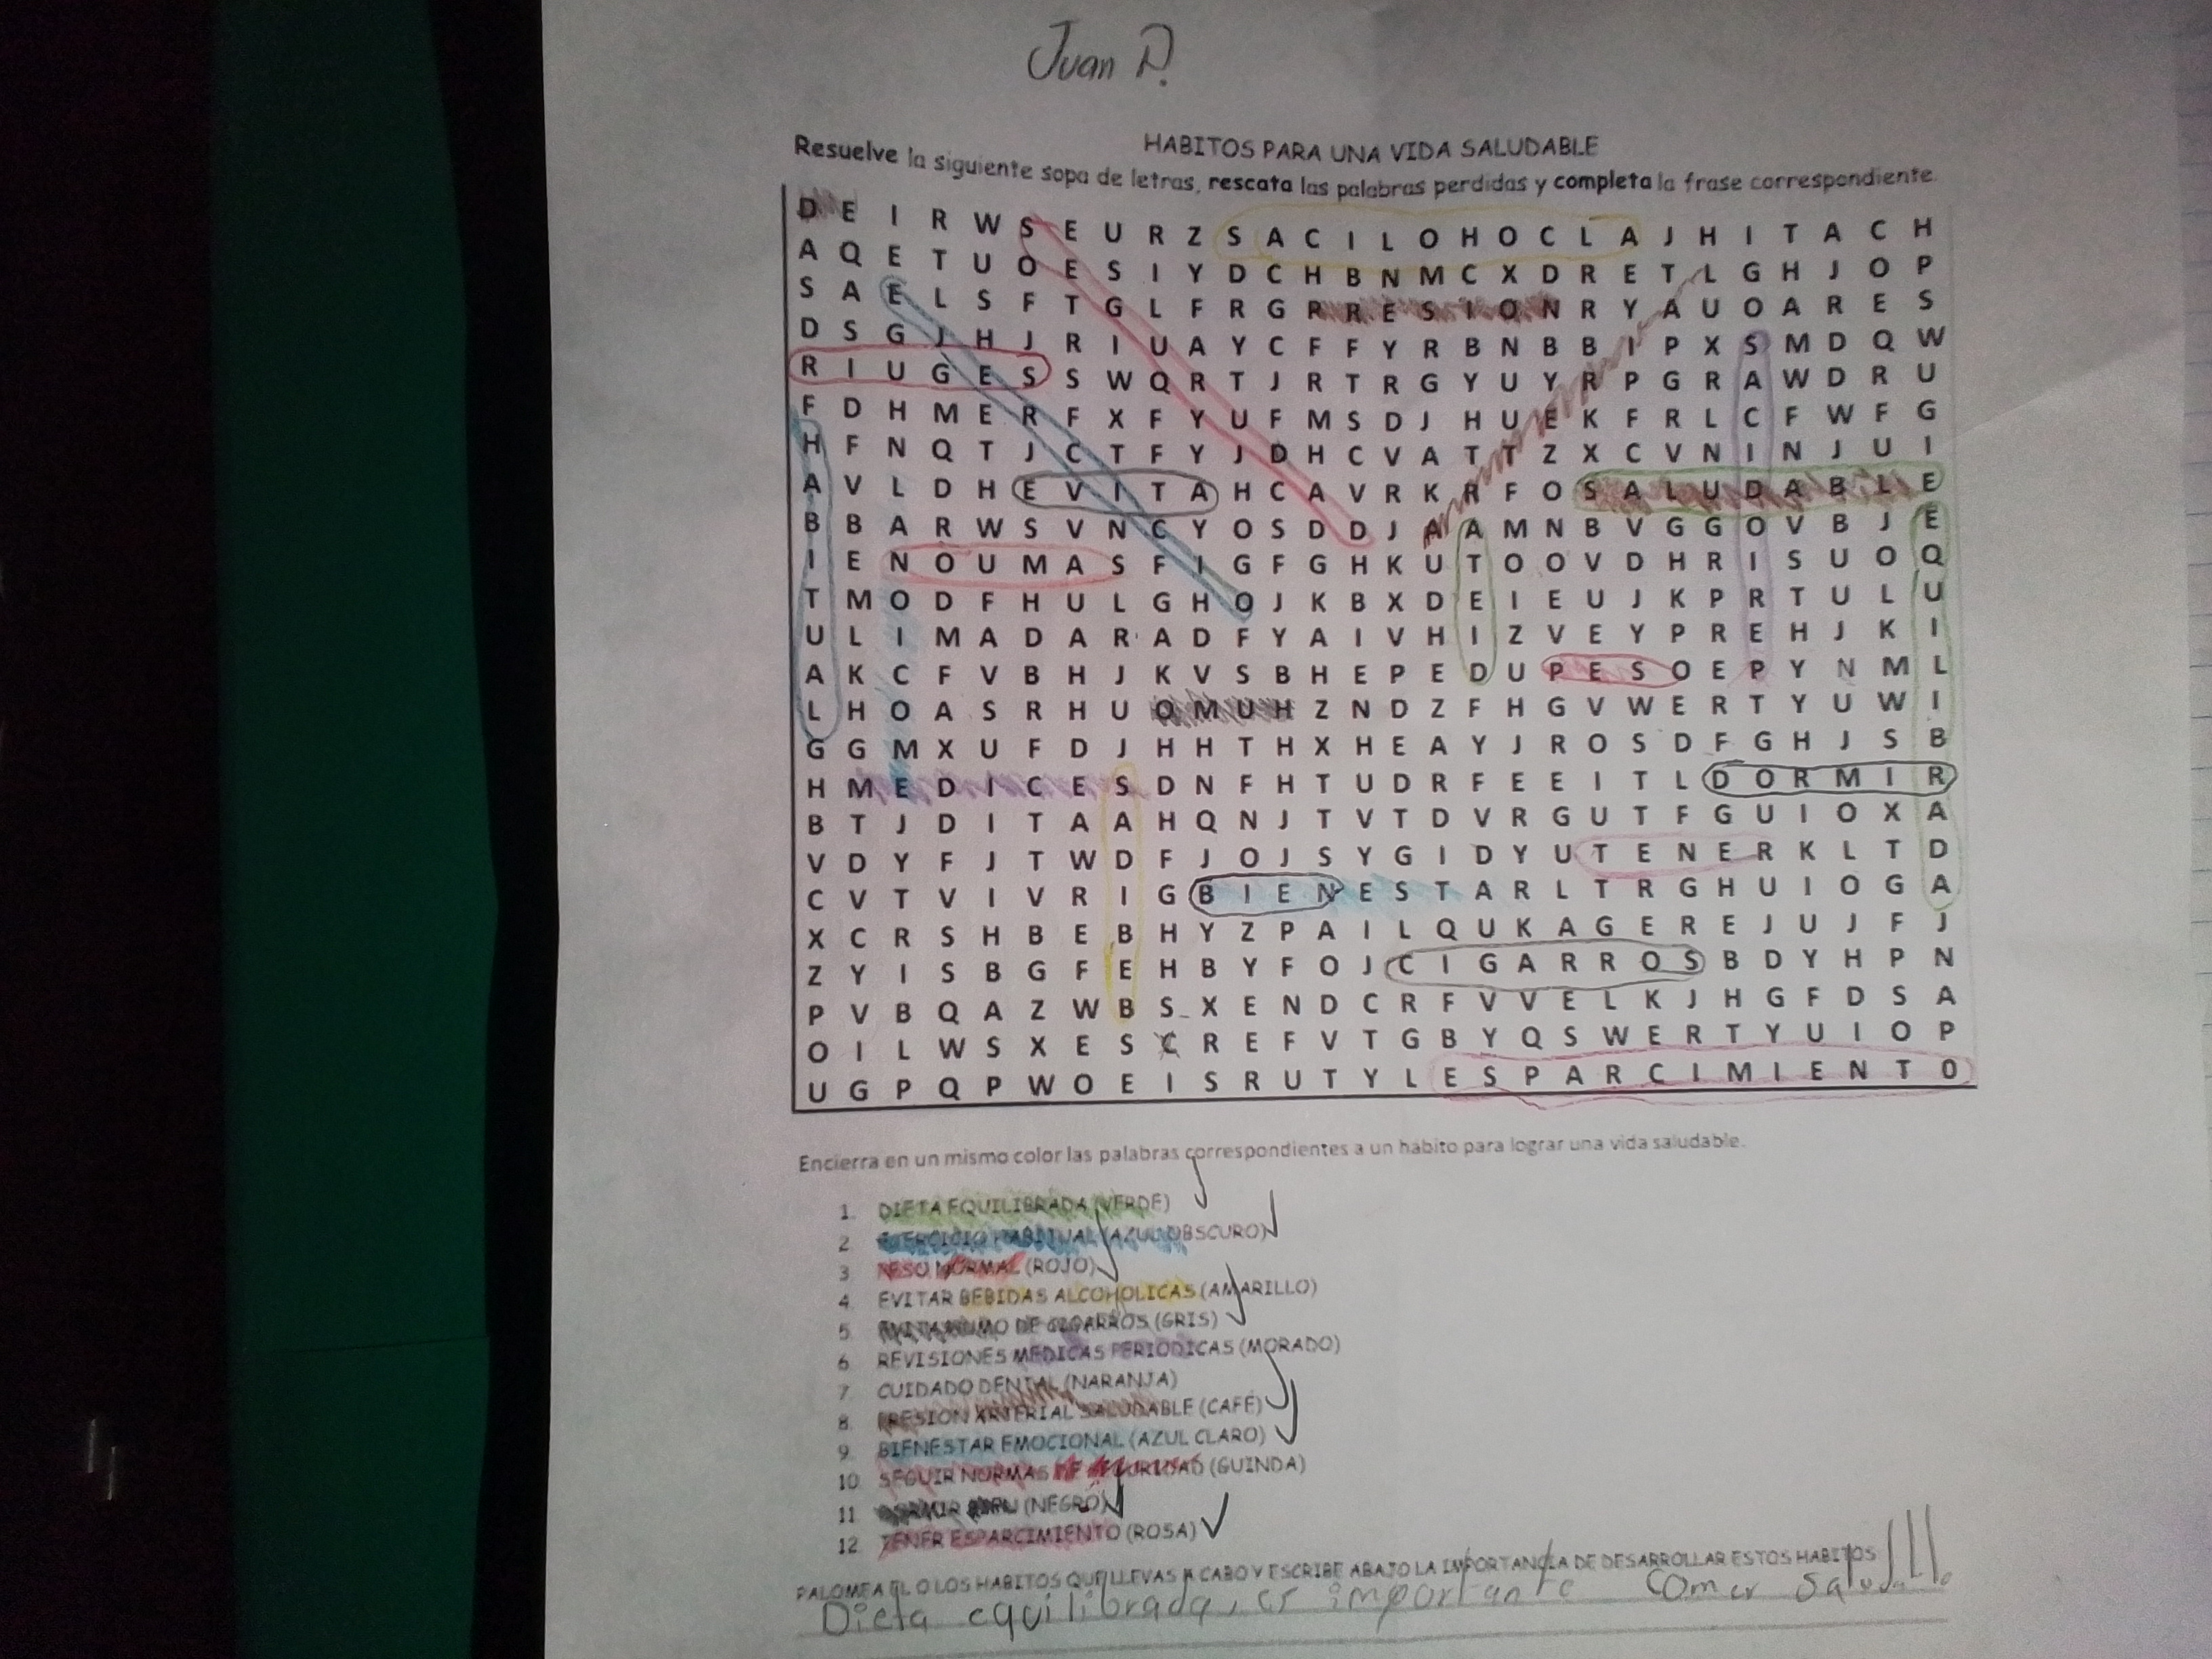 Juan D.
HABITOS PARA UNA VIDA SALUDABLE
Resuelve la siguiente sopa de letras, rescata las palabras perdidas y completa la frase correspondiente.
D E I R W S E U R Z S A C I L O H O C L A J H I T A C H
A Q E T U O E S I Y D C H B N M C X D R E T L G H J O P
S A E L S F T G L F R G P R E S I O N R Y A U O A R E S
D S G J H J R I U A Y C F F Y R B N B B I P X S M D Q W
R I U G E S S W Q R T J R T R G Y U Y R P G R A W D R U
F D H M E R F X F Y U F M S D J H U E K F R L C F W F G
H F N Q T J C T F Y J D H C V A T T Z X C V N I N J U I
A V L D H E V I T A H C A V R K R F O S A L U D A B L E
B B A R W S V N C Y O S D D J A A M N B V G G O V B J E
I E N O U M A S F I G F G H K U T O O V D H R I S U O Q
T M O D F H U L G H O J K B X D E I E U J K P R T U L U
U L I M A D A R A D F Y A I V H I Z V E Y P R E H J K I
A K C F V B H J K V S B H E P E D U P E S O E P Y N M L
L H O A S R H U O M U H Z N D Z F H G V W E R T Y U W I
G G M X U F D J H H T H X H E A Y J R O S D F G H J S B
H M E D I C E S D N F H T U D R F E E I T L D O R M I R
B T J D I T A A H Q N J T V T D V R G U T F G U I O X A
V D Y F J T W D F J O J S Y G I D Y U T E N E R K L T D
C V T V I V R I G B I E N E S T A R L T R G H U I O G A
X C R S H B E B H Y Z P A I L Q U K A G E R E J U J F J
Z Y I S B G F E H B Y F O J C I G A R R O S B D Y H P N
P V B Q A Z W B S X E N D C R F V V E L K J H G F D S A
O I L W S X E S C R E F V T G B Y Q S W E R T Y U I O P
U G P Q P W O E I S R U T Y L E S P A R C I M I E N T O
Encierra en un mismo color las palabras correspondientes a un habito para lograr una vida saludable.
1. DIETA EQUILIBRADA (VERDE)
2 EJERCICIO HABITUAL (AZUL OBSCURO)
3 PESO NORMAL (ROJO)
4. EVITAR BEBIDAS ALCOHOLICAS (AMARILLO)
5. EVITA HUMO DE CIGARROS (GRIS)
6 REVISIONES MEDICAS PERIODICAS (MORADO)
7. CUIDADO DENTAL (NARANJA)
8. PRESION ARTERIAL SALUDABLE (CAFÉ)
9. BIENESTAR EMOCIONAL (AZUL CLARO)
10 SEGUIR NORMAS DE SEGURIDAD (GUINDA)
11 DORMIR BIEN (NEGRO)
12. TENER ESPARCIMIENTO (ROSA)
PALOMEA EL O LOS HABITOS QUE LLEVAS A CABO Y ESCRIBE ABAJO LA IMPORTANCIA DE DESARROLLAR ESTOS HABITOS
Dieta equilibrada, es importante comer